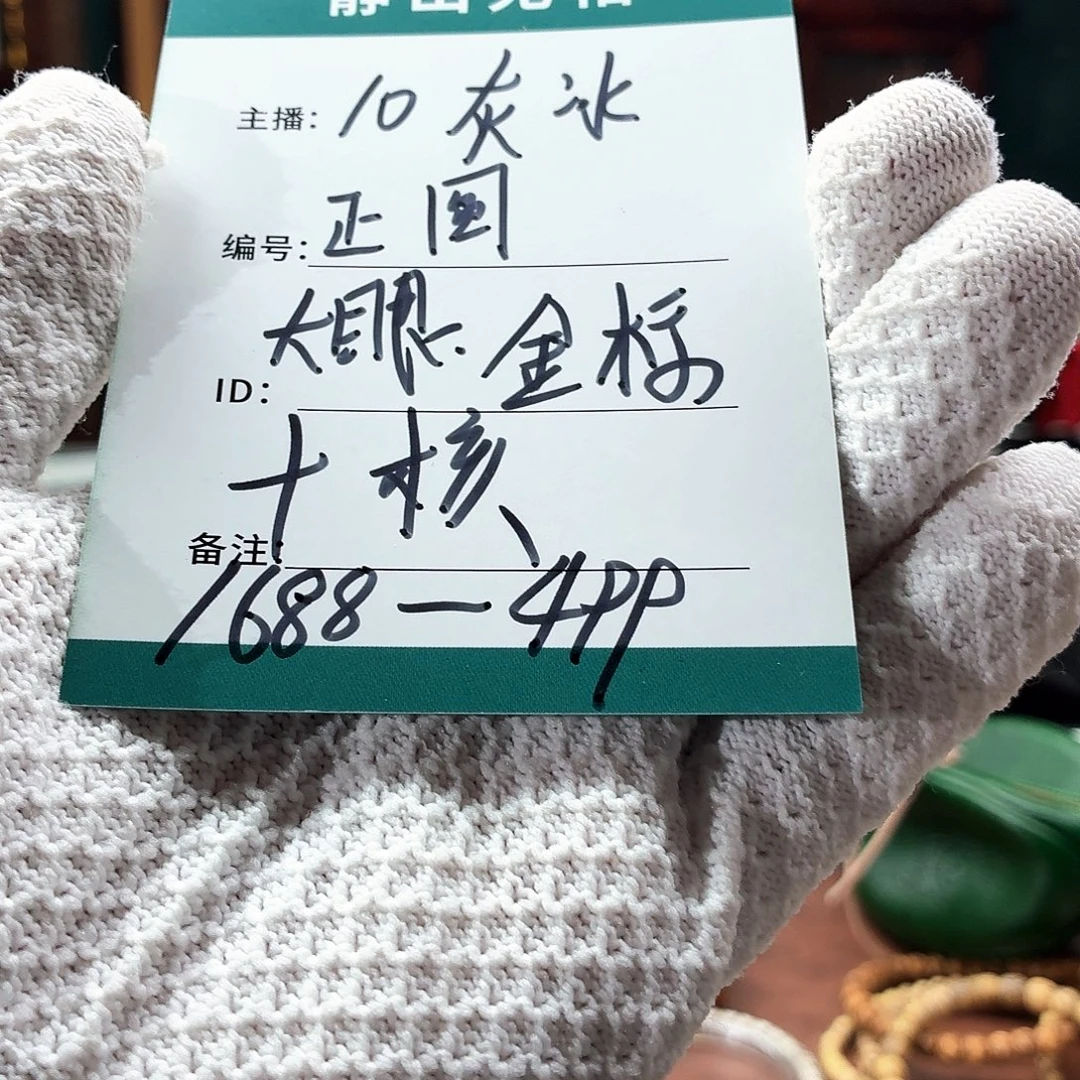 主播：10 灰冰
编号：正圆
ID：大眼 金标
十核、
备注：
1688—4PP